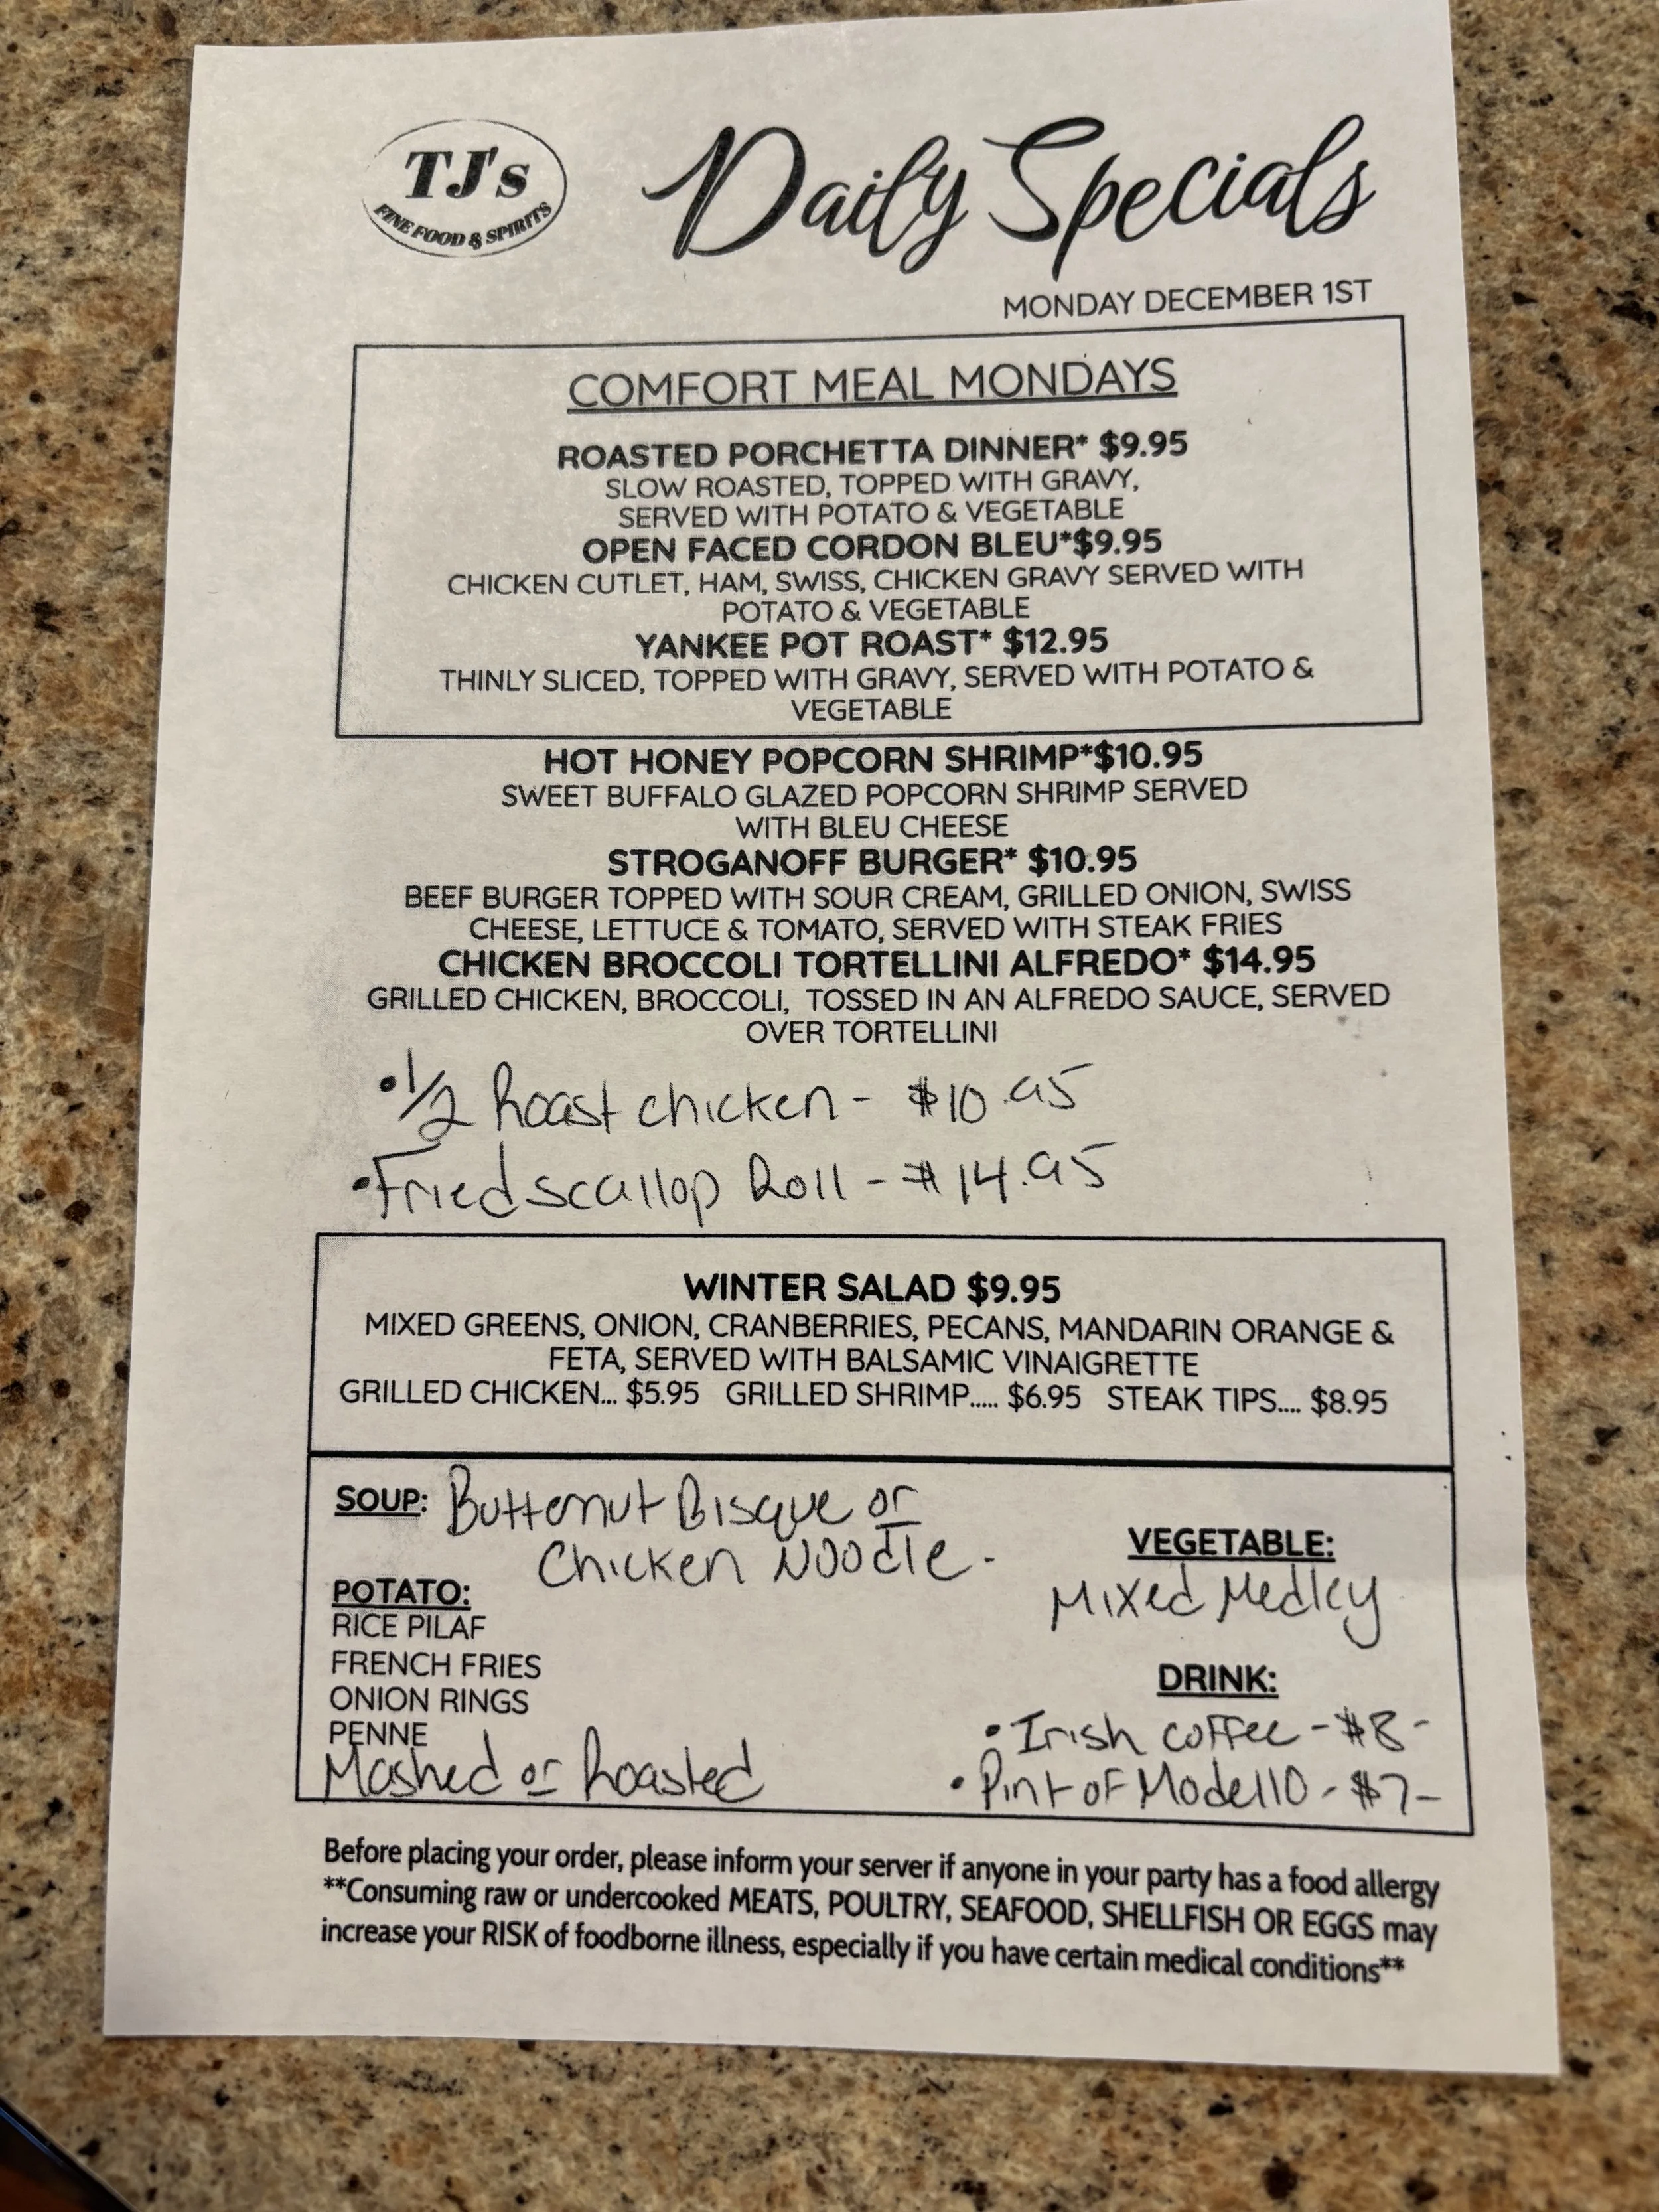 TJ's
FINE FOOD & SPIRITS
Daily Specials
MONDAY DECEMBER 1ST
COMFORT MEAL MONDAYS
ROASTED PORCHETTA DINNER* $9.95
SLOW ROASTED, TOPPED WITH GRAVY,
SERVED WITH POTATO & VEGETABLE
OPEN FACED CORDON BLEU*$9.95
CHICKEN CUTLET, HAM, SWISS, CHICKEN GRAVY SERVED WITH
POTATO & VEGETABLE
YANKEE POT ROAST* $12.95
THINLY SLICED, TOPPED WITH GRAVY, SERVED WITH POTATO &
VEGETABLE
HOT HONEY POPCORN SHRIMP*$10.95
SWEET BUFFALO GLAZED POPCORN SHRIMP SERVED
WITH BLEU CHEESE
STROGANOFF BURGER* $10.95
BEEF BURGER TOPPED WITH SOUR CREAM, GRILLED ONION, SWISS
CHEESE, LETTUCE & TOMATO, SERVED WITH STEAK FRIES
CHICKEN BROCCOLI TORTELLINI ALFREDO* $14.95
GRILLED CHICKEN, BROCCOLI, TOSSED IN AN ALFREDO SAUCE, SERVED
OVER TORTELLINI
• 1/2 Roast chicken - $10.95
• Fried scallop Roll - $14.95
WINTER SALAD $9.95
MIXED GREENS, ONION, CRANBERRIES, PECANS, MANDARIN ORANGE &
FETA, SERVED WITH BALSAMIC VINAIGRETTE
GRILLED CHICKEN... $5.95 GRILLED SHRIMP..... $6.95 STEAK TIPS.... $8.95
SOUP: Butternut Bisque or
Chicken Noodle -
POTATO:
RICE PILAF
FRENCH FRIES
ONION RINGS
PENNE
Mashed or Roasted
VEGETABLE:
Mixed Medley
DRINK:
• Irish coffee - $8 -
• Pint of Modello - $7 -
Before placing your order, please inform your server if anyone in your party has a food allergy
**Consuming raw or undercooked MEATS, POULTRY, SEAFOOD, SHELLFISH OR EGGS may
increase your RISK of foodborne illness, especially if you have certain medical conditions**